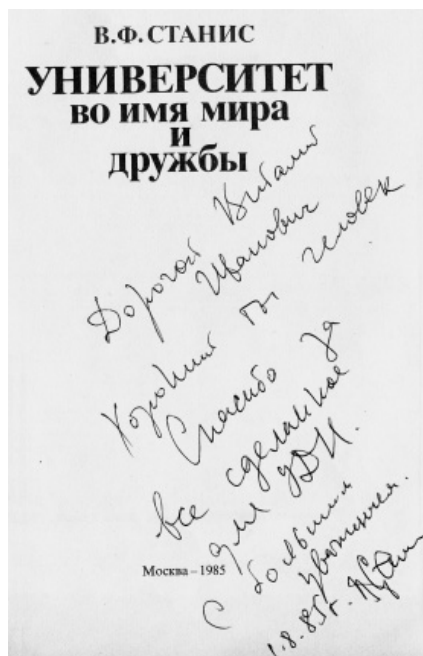 В.Ф. СТАНИС
УНИВЕРСИТЕТ
во имя мира
и
дружбы
Дорогой Виталий
Иванович
Хороший ты человек
Спасибо за
все сделанное
для УДН.
С большим
уважением.
1.8.85г.
Москва – 1985